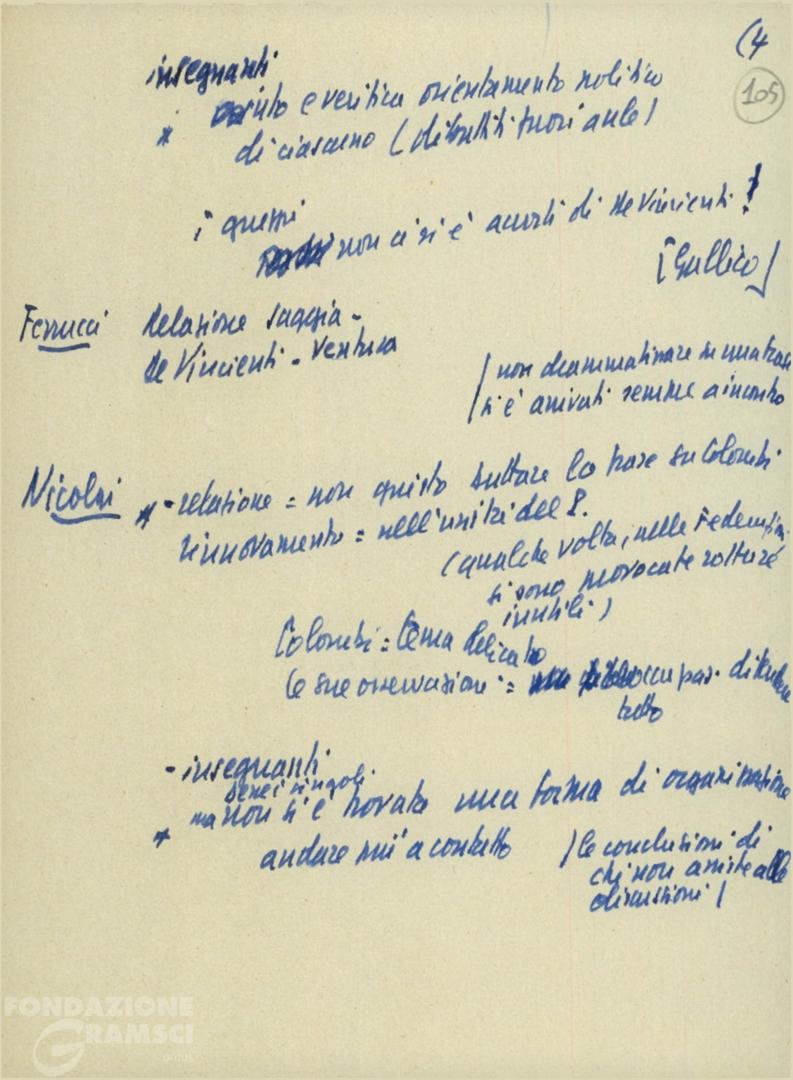 (4
105
insegnanti
* e verifica orientamento politico
di ciascuno (dibattiti fuori aule)
i gruppi
non ci si è accorti di De Vincienti!
[Gullico]
Ferrucci Relazione saggia -
De Vincienti - Ventura
/ non drammatizzare
si è arrivati sempre a incontro
Nicolai * - relazione = non giusto buttare la frase su Colombi
rinnovamento = nell'unità del P.
(qualche volta, nelle Federazioni
si sono provocate rotture
inutili)
Colombi = tema delicato
le sue osservazioni =
tutto
- insegnanti
singoli
* ma non si è trovata una forma di organizzazione
andare più a contatto / le conclusioni di
chi non assiste alle
discussioni /
FONDAZIONE
GRAMSCI
onlus